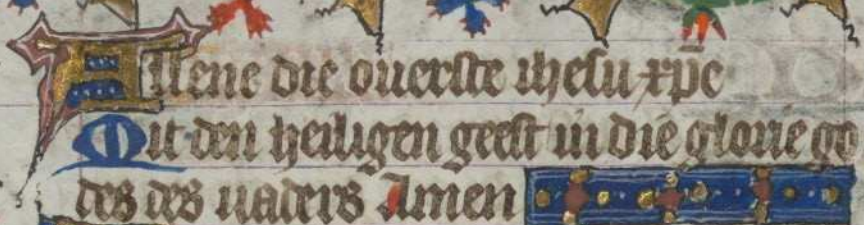 Allene die ouerste ihesu xp̄e
Mit den heiligen geest in die glorie go
des des uaders Amen